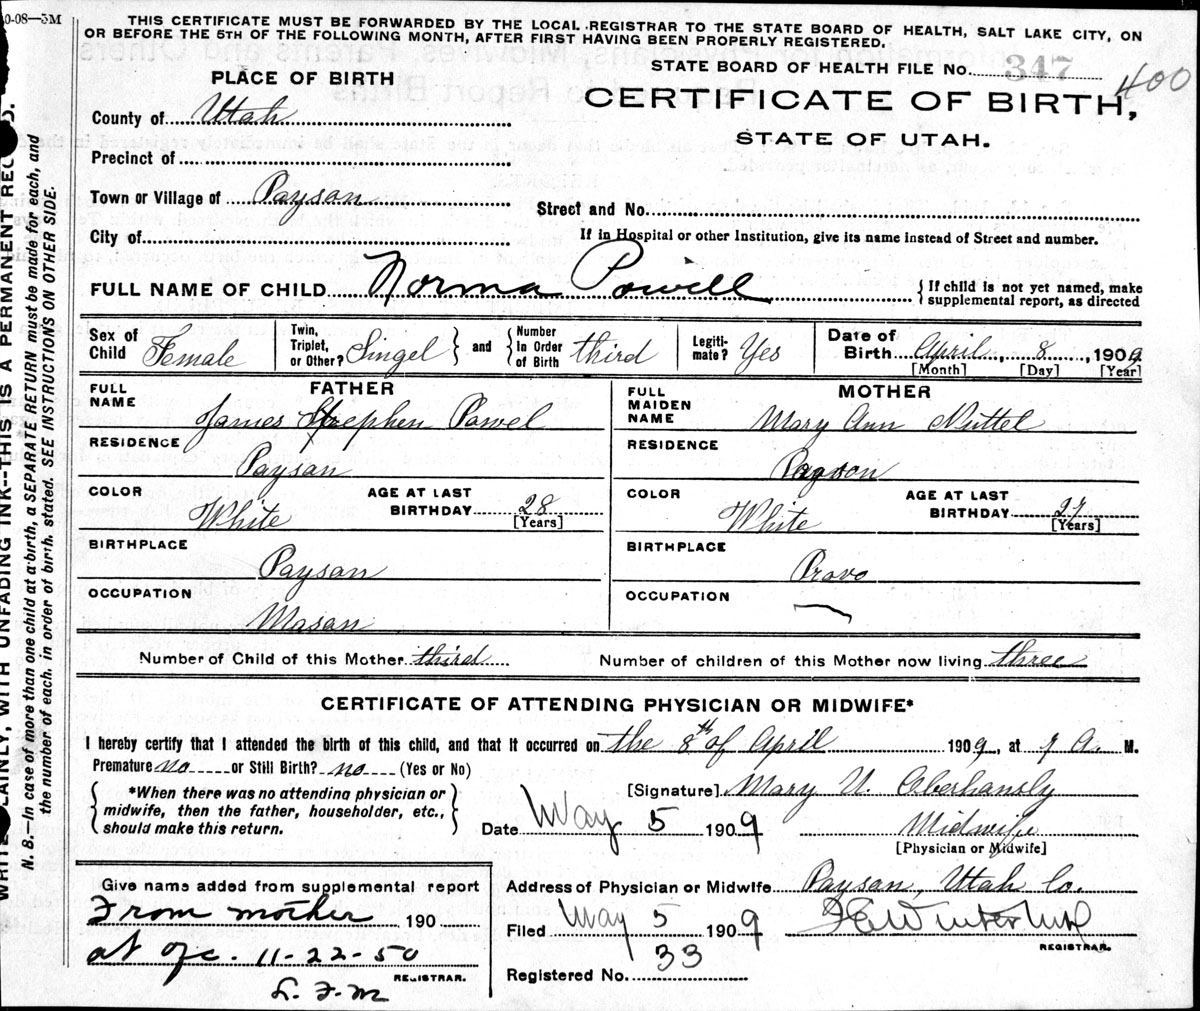 0-08—3M
THIS CERTIFICATE MUST BE FORWARDED BY THE LOCAL REGISTRAR TO THE STATE BOARD OF HEALTH, SALT LAKE CITY, ON
OR BEFORE THE 5TH OF THE FOLLOWING MONTH, AFTER FIRST HAVING BEEN PROPERLY REGISTERED.
STATE BOARD OF HEALTH FILE No. 347
400
PLACE OF BIRTH
CERTIFICATE OF BIRTH,
STATE OF UTAH.
County of Utah
Precinct of
Town or Village of Payson
Street and No.
City of
If in Hospital or other Institution, give its name instead of Street and number.
FULL NAME OF CHILD Norma Powell { If child is not yet named, make
supplemental report, as directed
Sex of Child Female
Twin, Triplet, or Other? Singel } and { Number In Order of Birth third
Legiti- mate? Yes
Date of Birth April, 8, 1909
[Month] [Day] [Year]
FATHER
FULL NAME James Strephen Powel
RESIDENCE
Payson
COLOR White AGE AT LAST BIRTHDAY 28 [Years]
BIRTHPLACE
Payson
OCCUPATION
Mason
MOTHER
FULL MAIDEN NAME Mary Ann Nuttel
RESIDENCE
Payson
COLOR White AGE AT LAST BIRTHDAY 27 [Years]
BIRTHPLACE
Provo
OCCUPATION
Number of Child of this Mother third Number of children of this Mother now living three
CERTIFICATE OF ATTENDING PHYSICIAN OR MIDWIFE*
I hereby certify that I attended the birth of this child, and that it occurred on the 8th of April 1909, at 9 A. M.
Premature no or Still Birth? no (Yes or No)
{ *When there was no attending physician or
midwife, then the father, householder, etc.,
should make this return. }
[Signature] Mary U. Oberhansly
Date May 5 1909
Midwife
[Physician or Midwife]
Give name added from supplemental report
From mother 190
at ofc. 11-22-50
REGISTRAR.
L. F. M
Address of Physician or Midwife Payson, Utah Co.
Filed May 5 1909
REGISTRAR.
Registered No. 33
WRITE PLAINLY, WITH UNFADING INK--THIS IS A PERMANENT RECORD.
N. B.--In case of more than one child at a birth, a SEPARATE RETURN must be made for each, and
the number of each, in order of birth, stated. SEE INSTRUCTIONS ON OTHER SIDE.